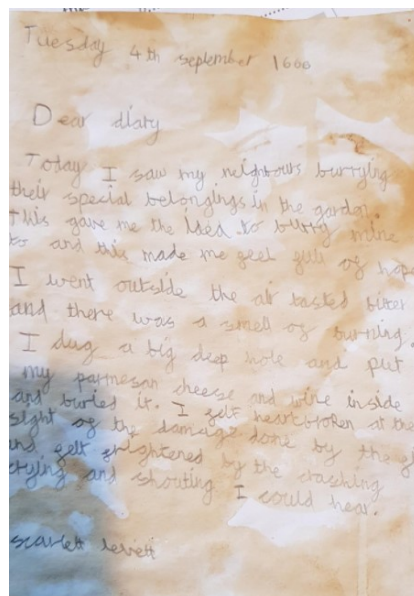 Tuesday 4th september 1666
Dear diary
Today I saw my neighbours burrying
their special belongings in the garden.
This gave me the idea to burry mine
to and this made me feel full of hope
I went outside the air tasted bitter
and there was a smell of burning.
I dug a big deep hole and put
my parmesan cheese and wine inside
and buried it. I felt heartbroken at the
sight of the damage done by the
and felt frightened by the crashing
crying and shouting I could hear.
scarlett levett